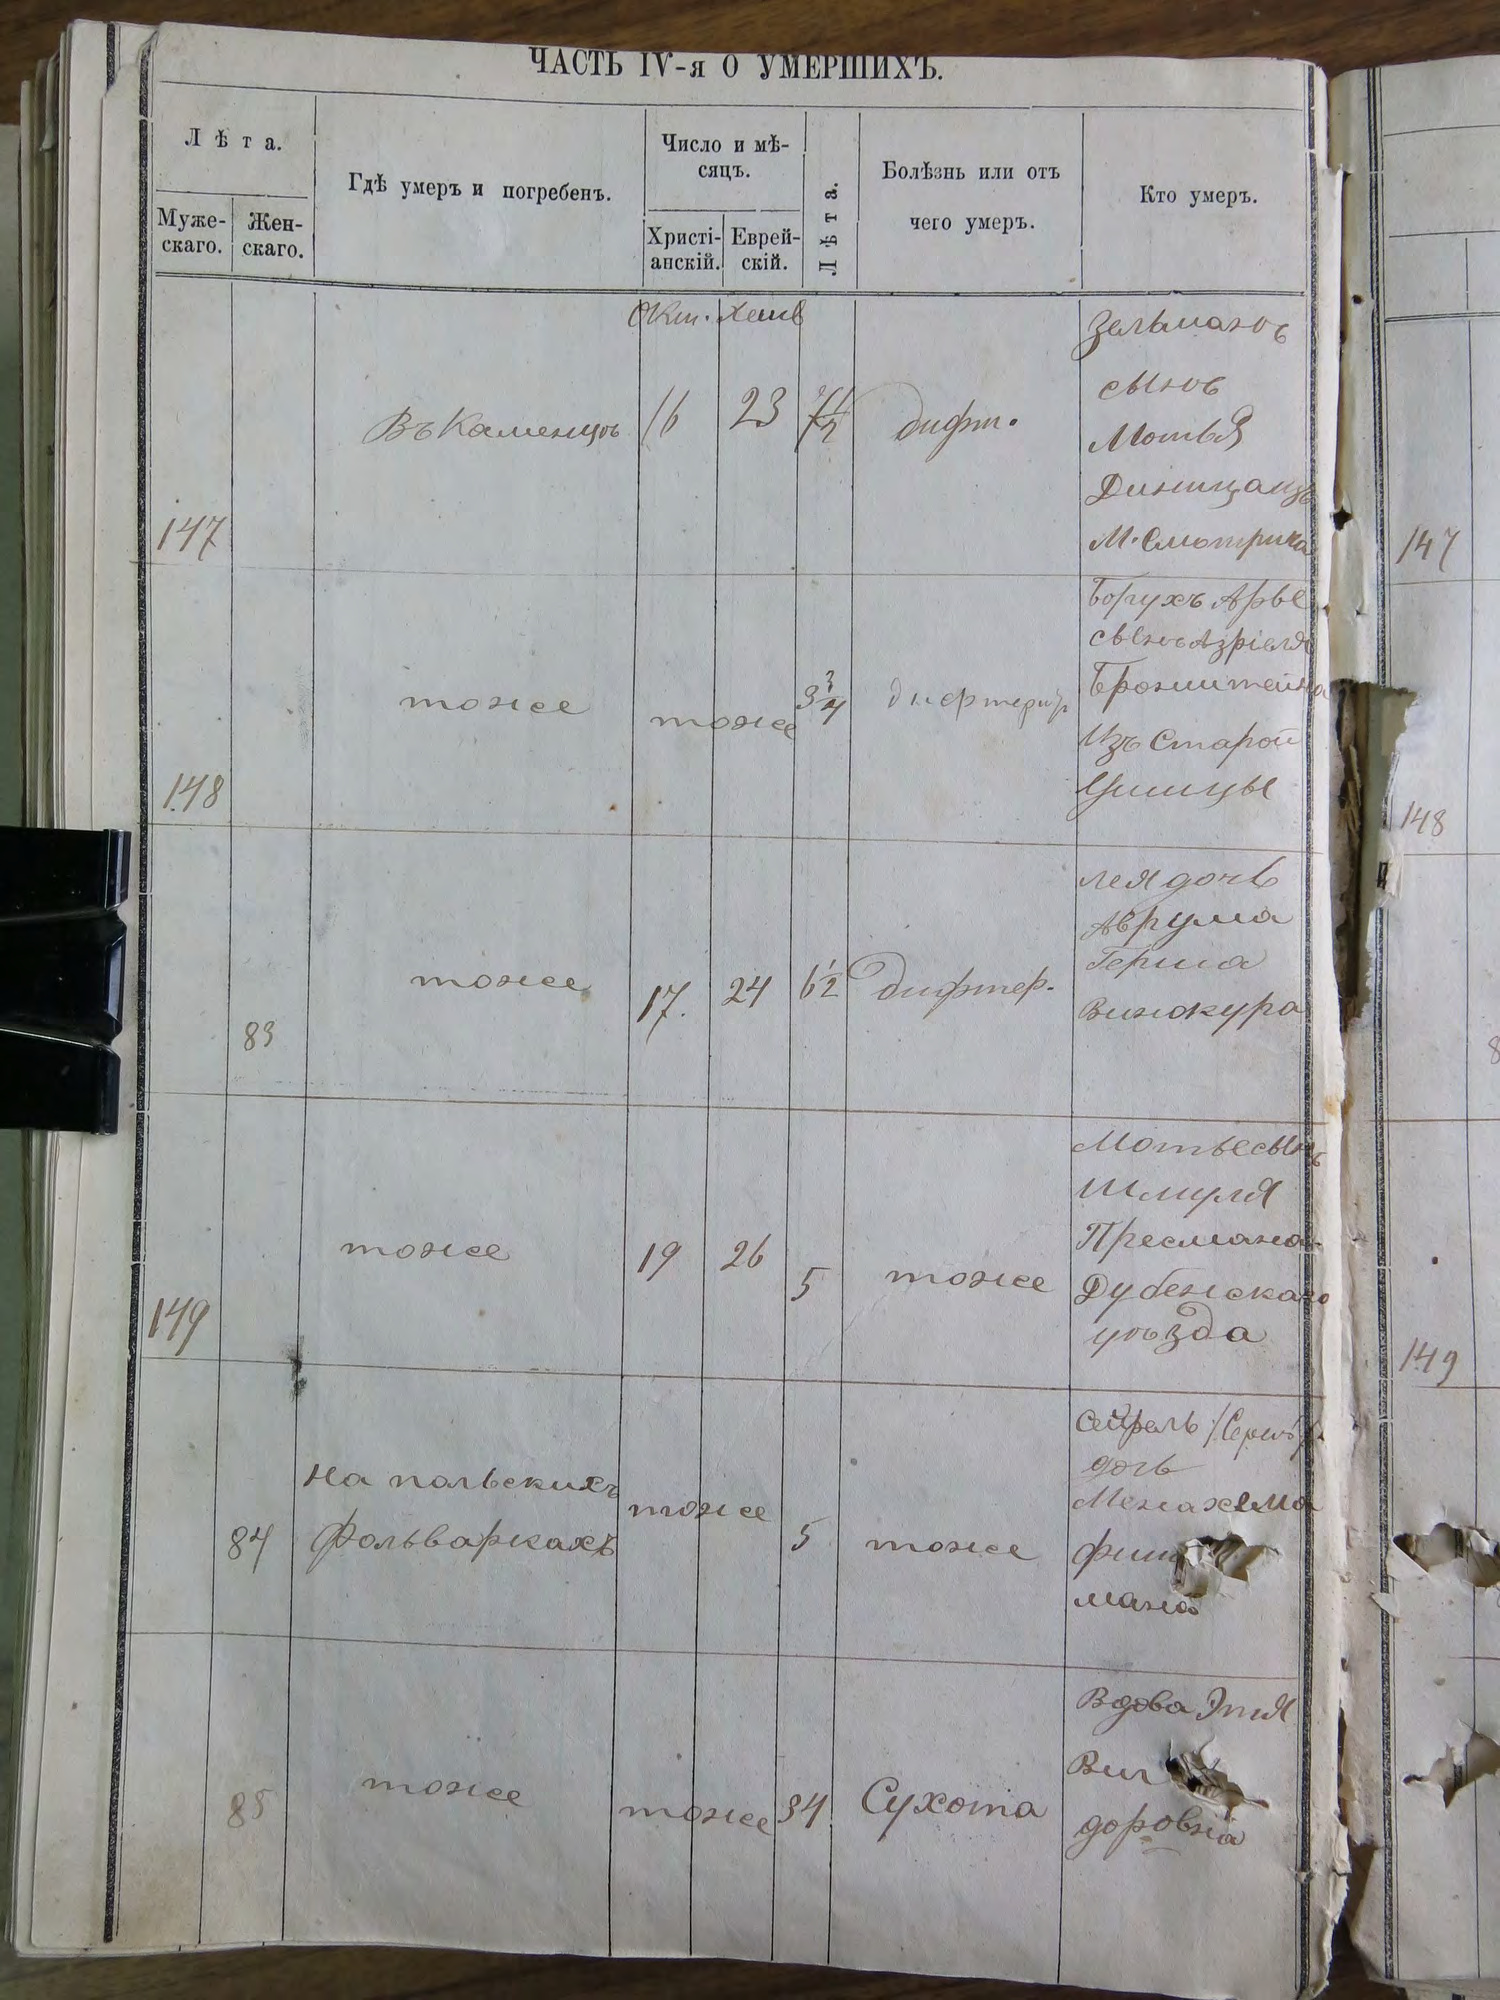 ЧАСТЬ IV-я О УМЕРШИХЪ.
Лѣта.
Муже-
скаго.
Жен-
скаго.
Гдѣ умеръ и погребенъ.
Число и мѣ-
сяцъ.
Христі-
анскій.
Еврей-
скій.
Лѣта.
Болѣзнь или отъ
чего умеръ.
Кто умеръ.
Окт. Хешв
147
Въ Каменцѣ
16
23
дифт.
Зельманъ
сынъ
Мотья
Динищанъ
М. Смотрича
148
тоже
тоже
3 3/4
дифтеритъ
Борухъ Арье
сынъ Азріеля
Бронштейна
Изъ Старой
Ушицы
83
тоже
17.
24
6 1/2
дифтер.
Лея дочь
Аврума
Герша
Винокура
149
тоже
19
26
5
тоже
Мотье сынъ
Шмуля
Пресмана
Дубенскаго
уѣзда
84
На польскихъ
фольваркахъ
тоже
5
тоже
Сейрель
дочь
Менахема
Фиш
мана
85
тоже
тоже
34
Сухота
Вдова Этя
Виг
доровна
147
148
149